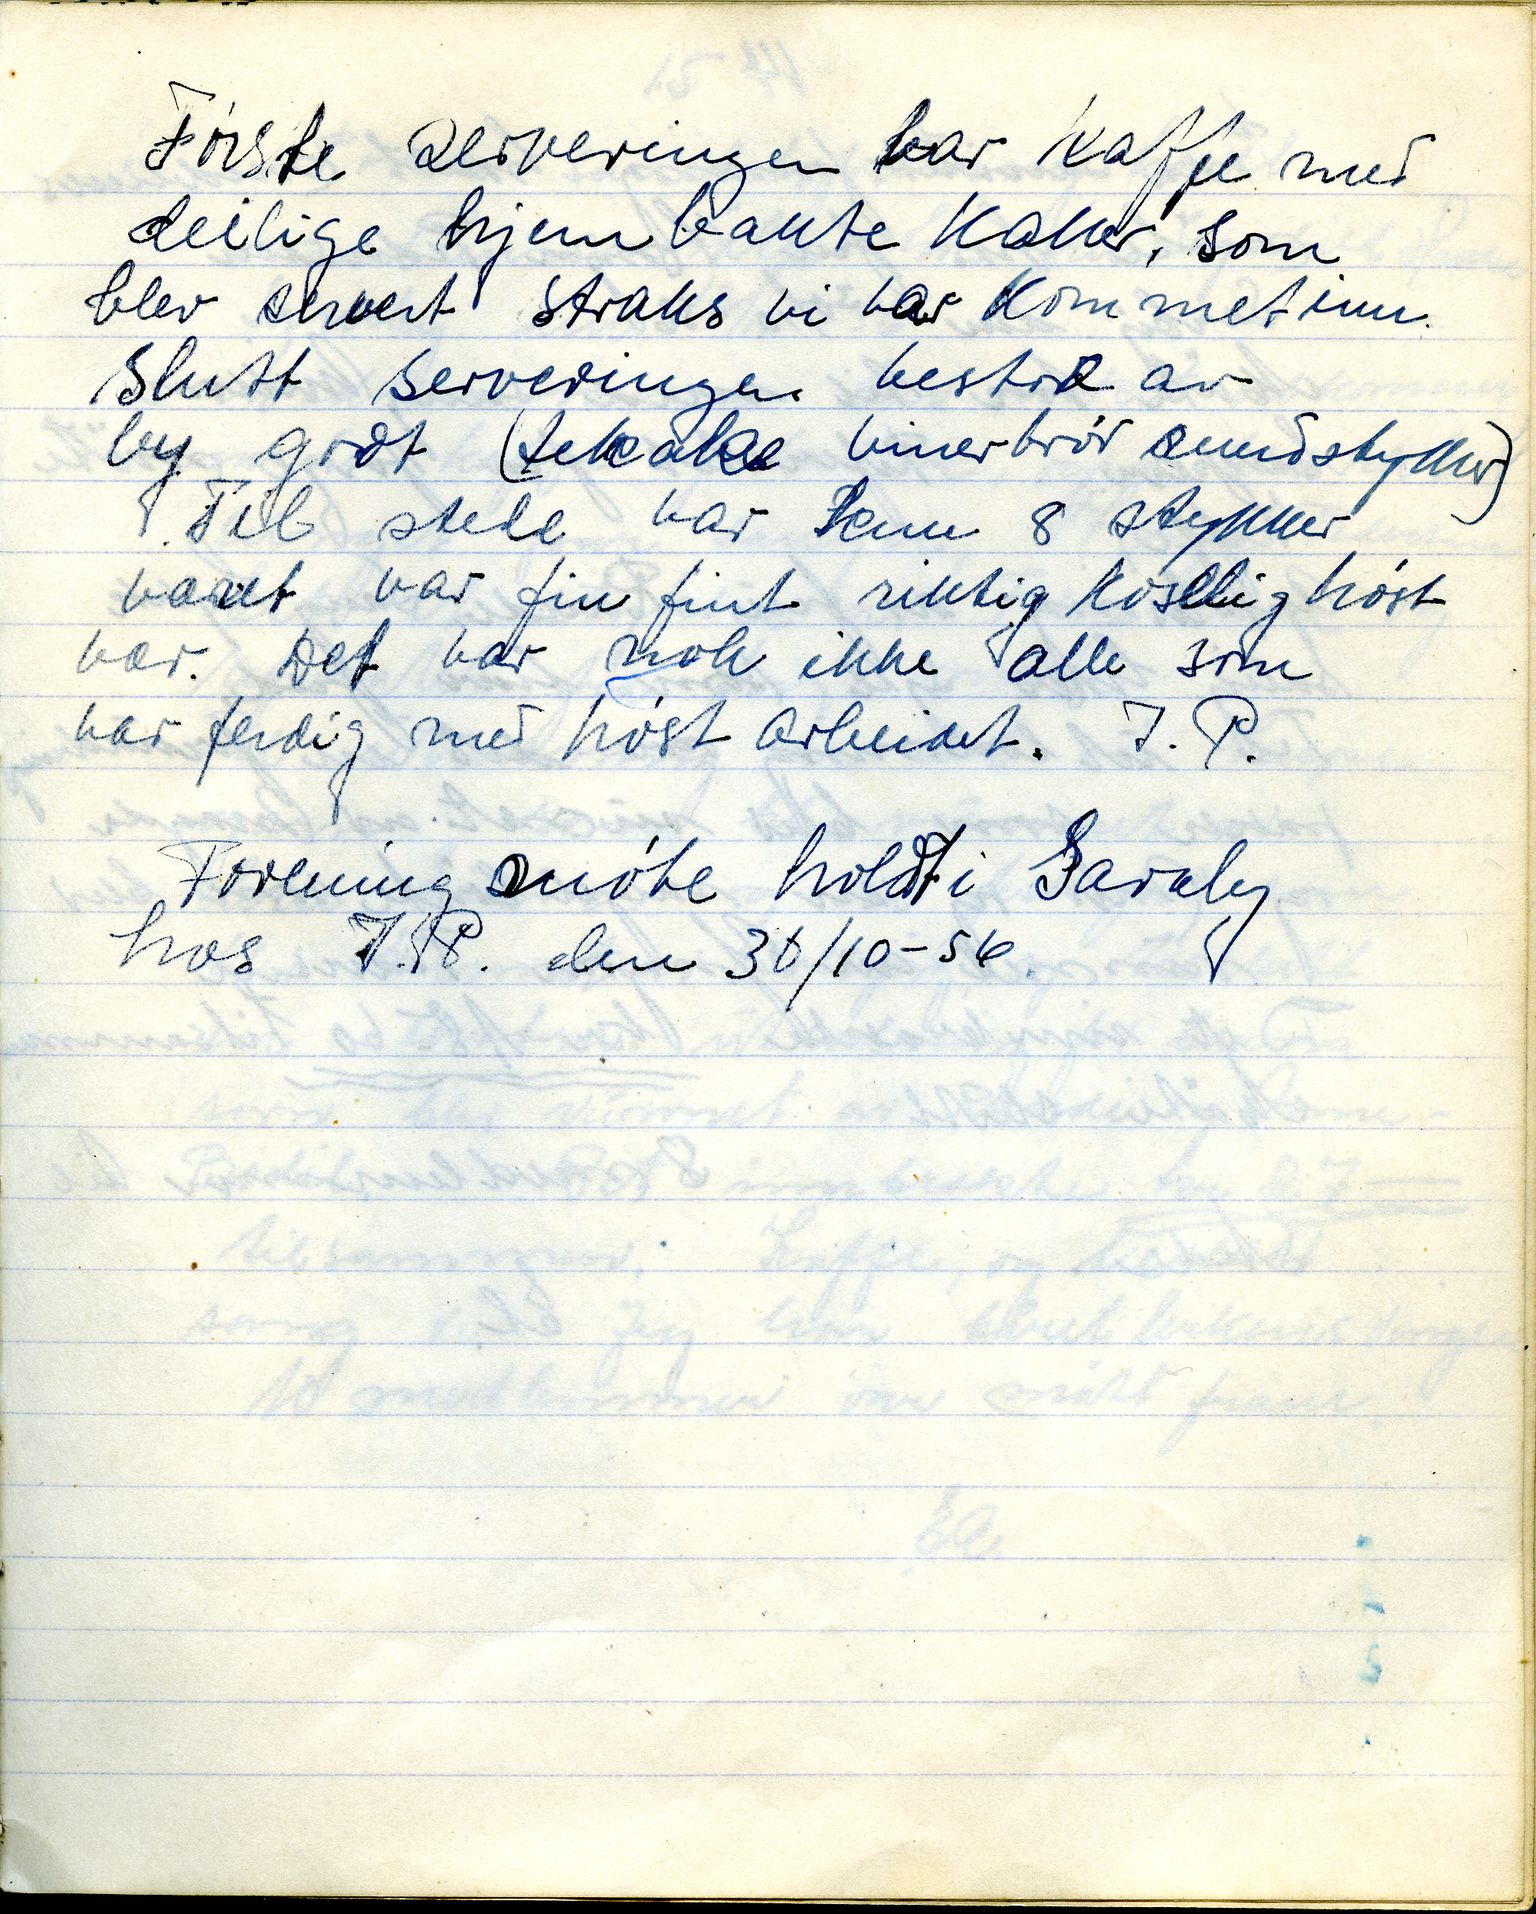 Förste serveringen var kaffe med
deilige hjem bakte kaker, som
blev servert straks vi var kommet inn.
Slutt serveringen bestod av
by godt (tekake vinerbröd rundstykker)
Til stede var kun 8 stykker
været var fin fint riktig koselig höst
vær. Det var nok ikke alle som
var ferdig med höst arbeidet. J. P.
Forening smöte holdt i Saraby
hos J. P. den 30/10-56.